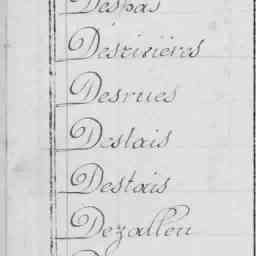 Despas
Desrivières
Desrues
Deslais
Destais
Dezalleu